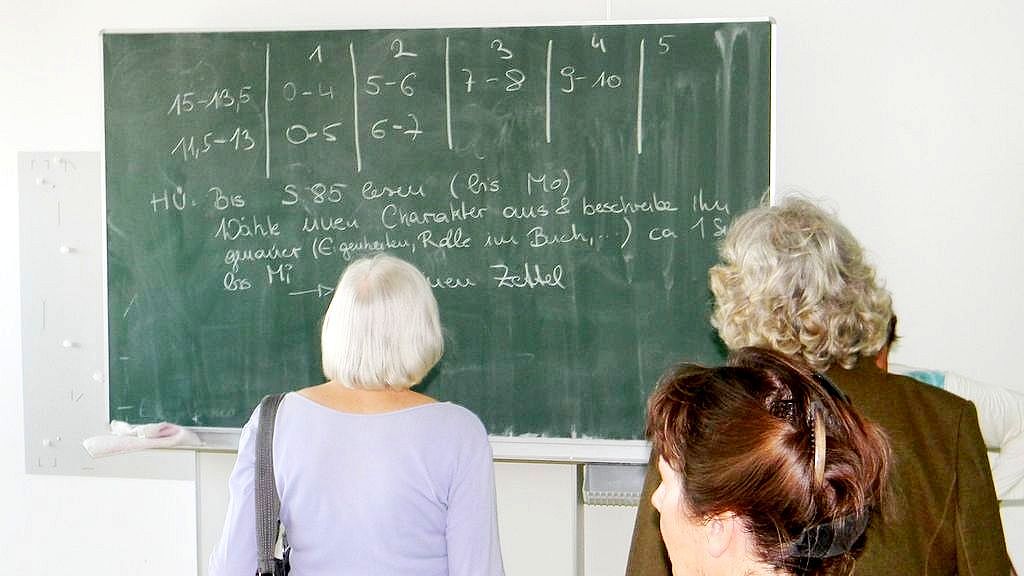 1 2 3 4 5
15-13,5 0-4 5-6 7-8 9-10
11,5-13 0-5 6-7
HÜ: Bis S 85 lesen (bis Mo)
Wähle einen Charakter aus & beschreibe ihn
genauer (Eigenheiten, Rolle im Buch,...) ca 1 S
bis Mi → Zettel